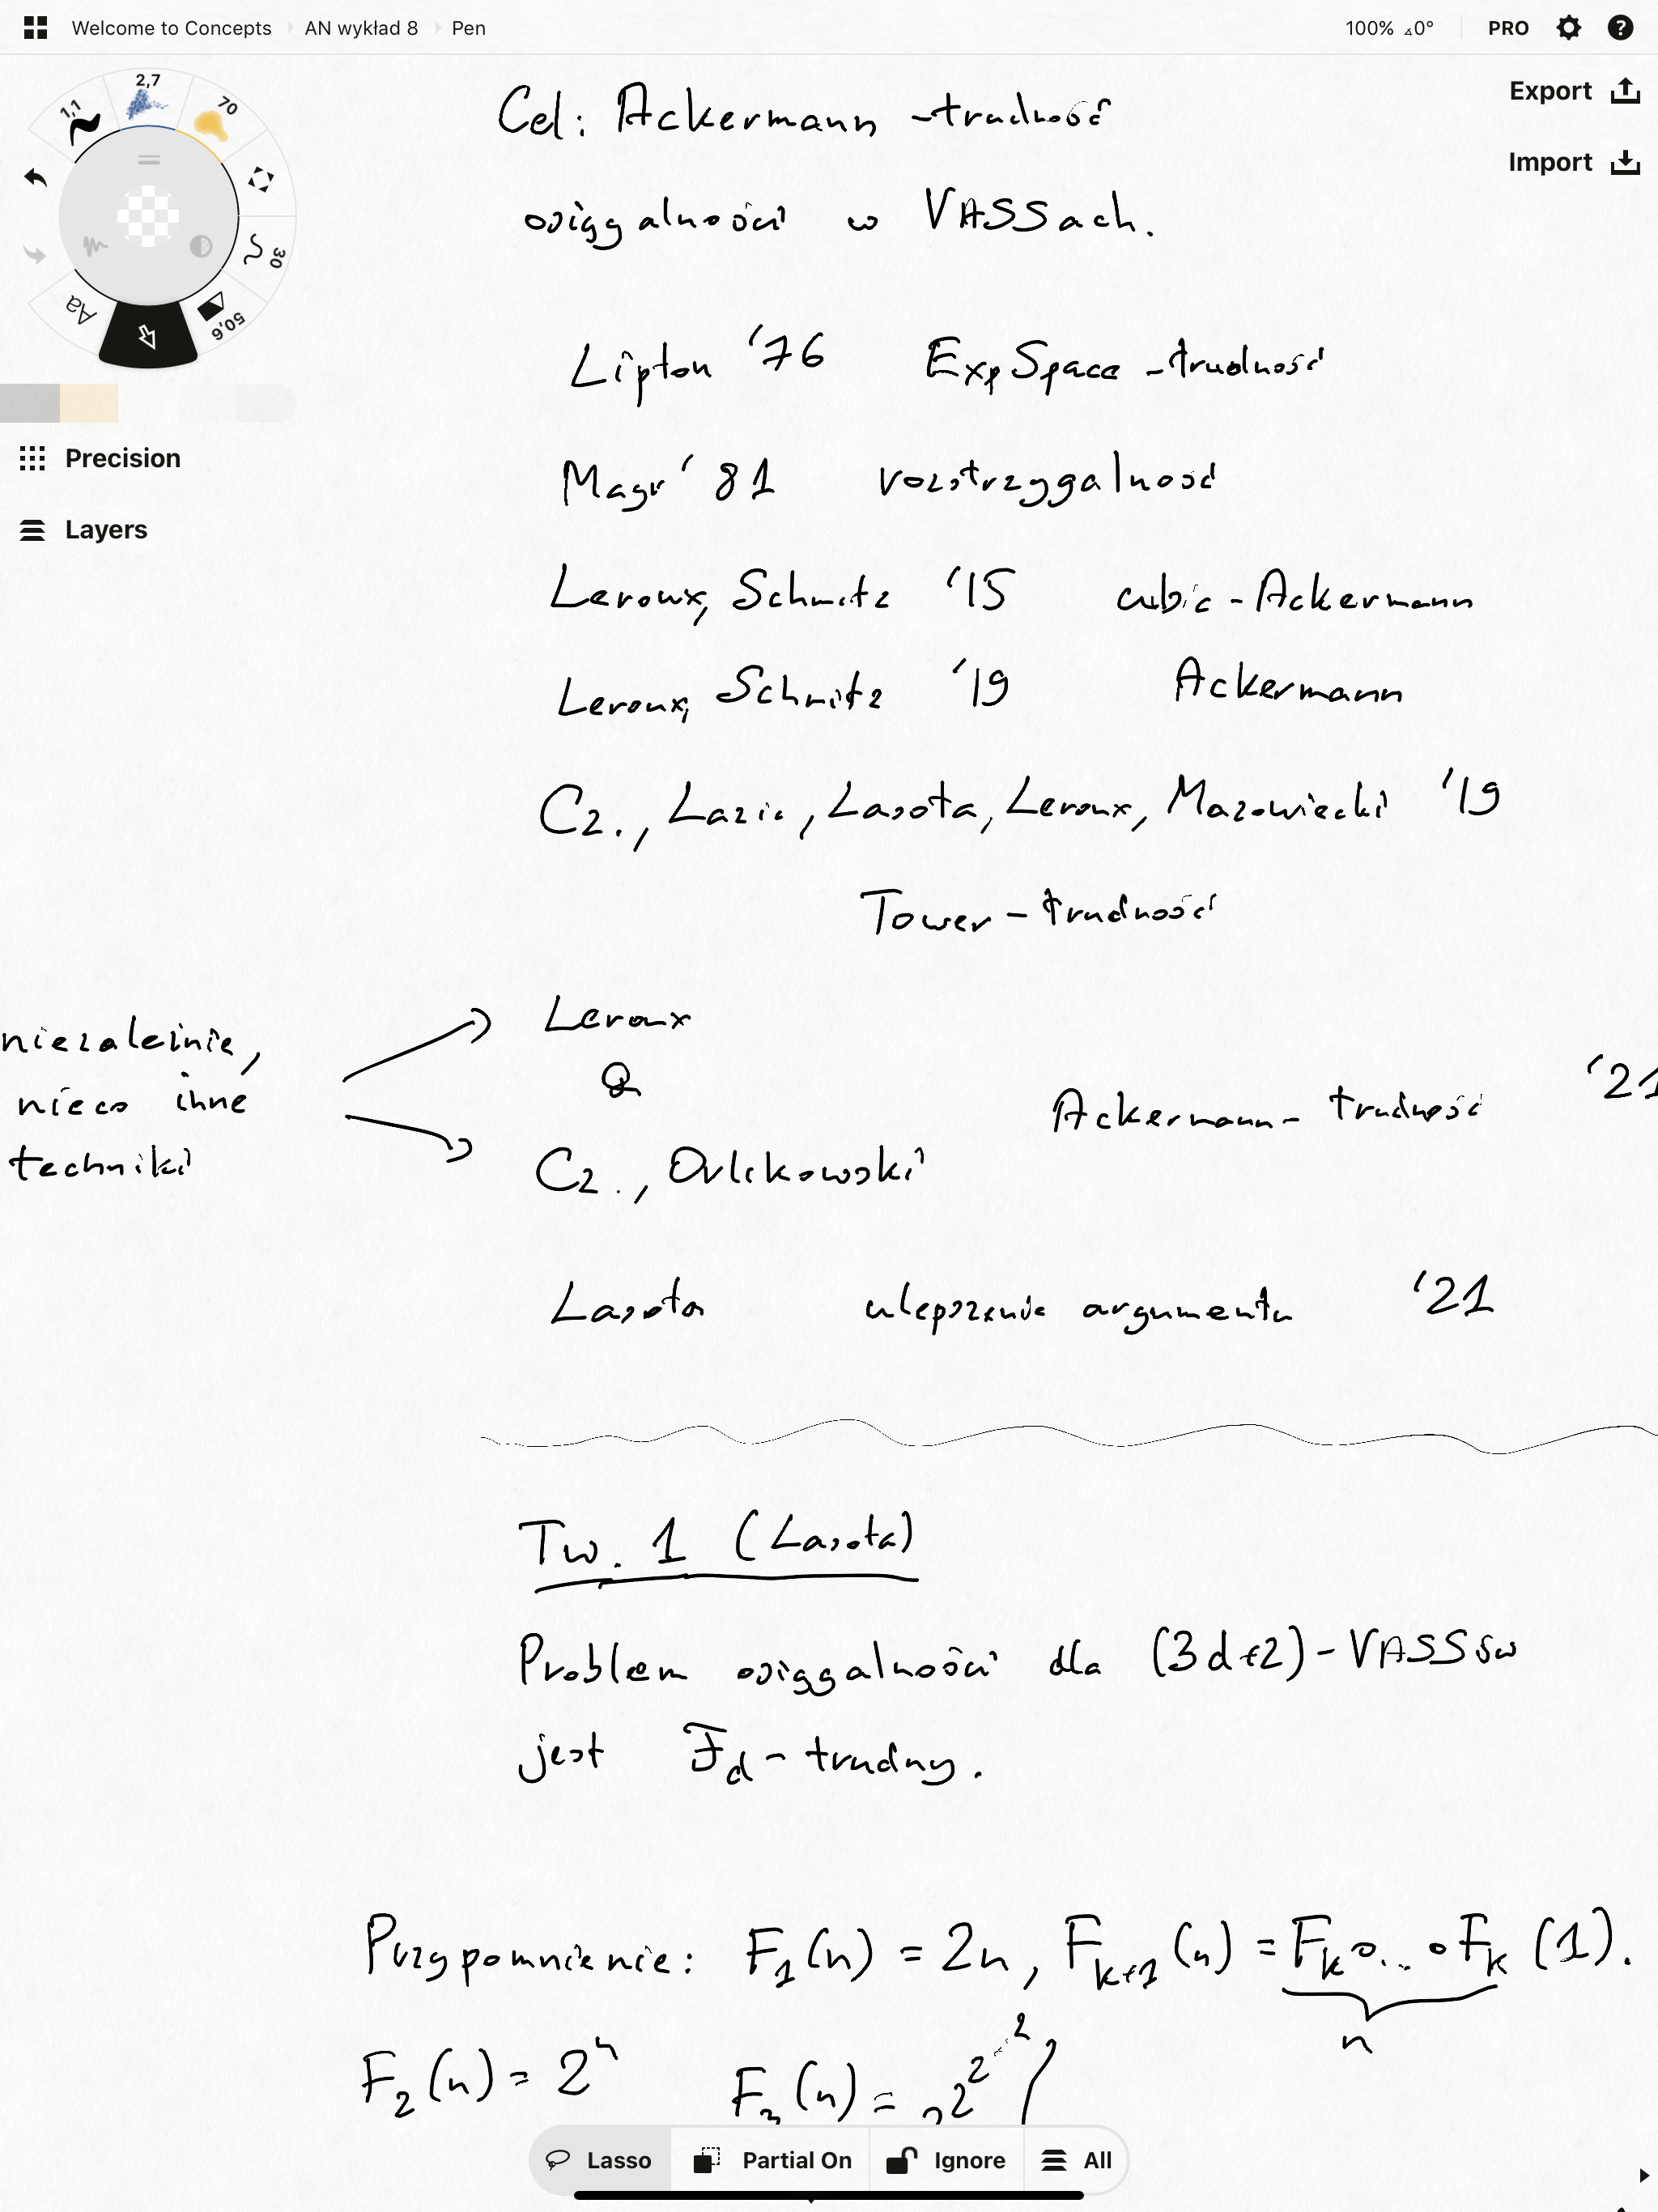 Welcome to Concepts AN wykład 8 Pen
100% ⊿0° PRO
Export
Import
1,1 2,7 70
30
50,6
Aa
Precision
Layers
Cel: Ackermann - trudność
osiągalności w VASSach.
Lipton '76 ExpSpace - trudność
Mayr '81 rozstrzygalność
Leroux, Schmitz '15 cubic - Ackermann
Leroux, Schmitz '19 Ackermann
Cz., Lazic, Lasota, Leroux, Mazowiecki '19
Tower - trudność
niezależnie,
nieco inne
techniki
Leroux
&
Cz., Orlikowski
Ackermann - trudność '21
Lasota ulepszenie argumentu '21
Tw. 1 (Lasota)
Problem osiągalności dla (3d+2) - VASSów
jest F_d - trudny.
Przypomnienie: F_1(n) = 2n, F_{k+1}(n) = F_k ∘ ... ∘ F_k (1).
n
F_2(n) = 2^n F_3(n) = 2^{2^{2^{⋰^2}}}
Lasso Partial On Ignore All